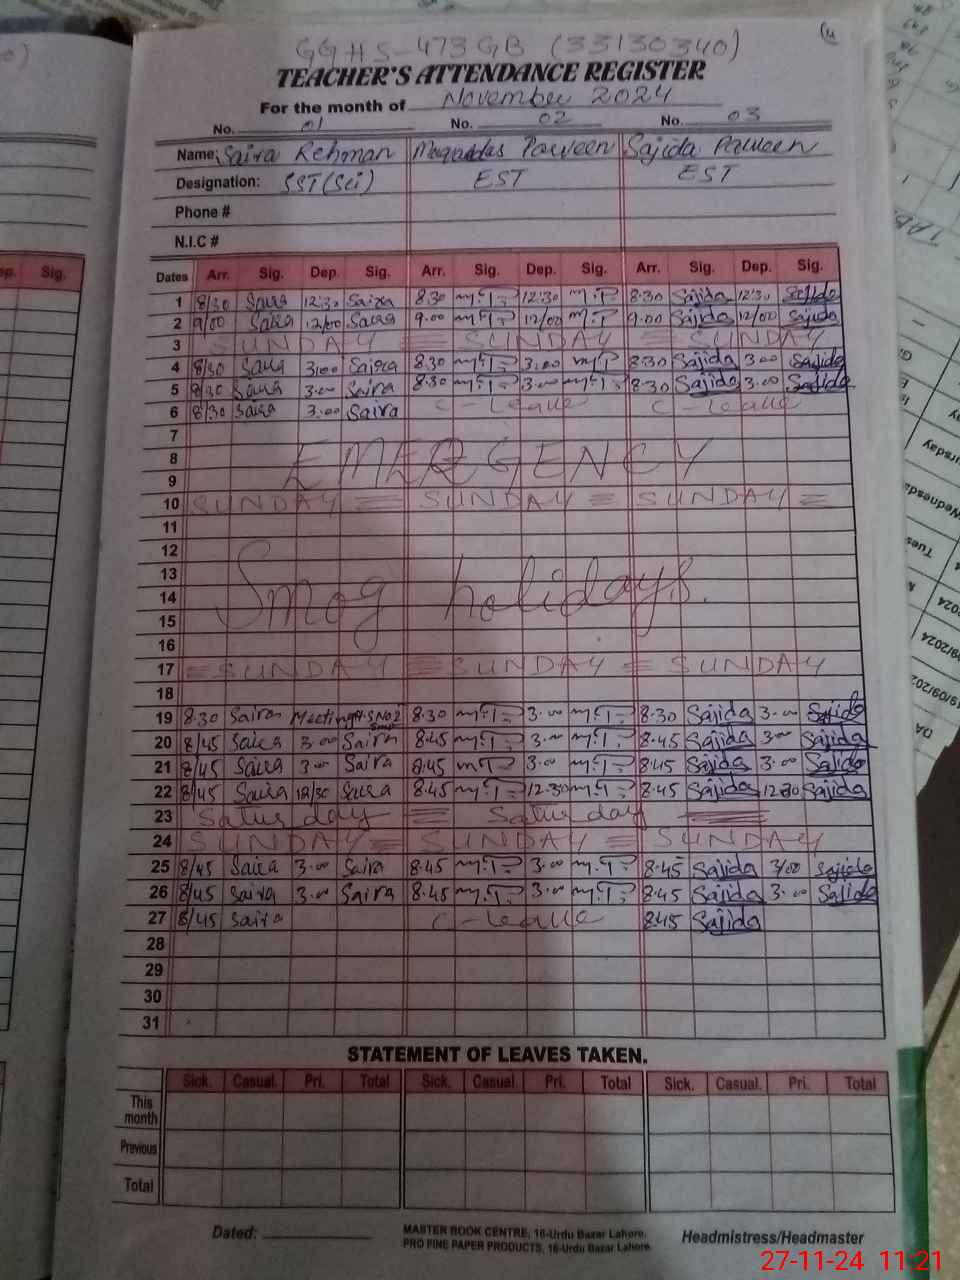 GGHS-473GB (33130340)
TEACHER'S ATTENDANCE REGISTER
For the month of November 2024
No. 01 No. 02 No. 03
Name: Saira Rehman Parveen Sajida Parveen
Designation: SST(Sci) EST EST
Phone #
N.I.C #
Dates Arr. Sig. Dep. Sig. Arr. Sig. Dep. Sig. Arr. Sig. Dep. Sig.
1 8/30 Saira 12:30 Saira 8.30 12:30 8.30 Sajida 12:30 Sajida
2 9/00 Saira 12/00 Saira 9.00 12/00 9.00 Sajida 12/00 Sajida
3 SUNDAY SUNDAY SUNDAY
4 8/30 Saira 3:00 Saira 8.30 3.00 8.30 Sajida 3.00 Sajida
5 8/30 Saira 3.00 Saira 8.30 3.00 8.30 Sajida 3.00 Sajida
6 8/30 Saira 3.00 Saira C-Leave C-Leave
7
8 EMERGENCY
9
10 SUNDAY SUNDAY SUNDAY
11
12
13
14 Smog holidays.
15
16
17 SUNDAY SUNDAY SUNDAY
18
19 8.30 Saira Meeting 8.30 3.00 8.30 Sajida 3.00 Sajida
20 8/45 Saira 3.00 Saira 8.45 3.00 8.45 Sajida 3.00 Sajida
21 8/45 Saira 3.00 Saira 8.45 3.00 8.45 Sajida 3.00 Sajida
22 8/45 Saira 12/30 Saira 8.45 12.30 8.45 Sajida 12.30 Sajida
23 Saturday Saturday
24 SUNDAY SUNDAY SUNDAY
25 8/45 Saira 3.00 Saira 8.45 3.00 8.45 Sajida 3/00 Sajida
26 8/45 Saira 3.00 Saira 8.45 3.00 8.45 Sajida 3.00 Sajida
27 8/45 Saira C-Leave 8.45 Sajida
28
29
30
31
STATEMENT OF LEAVES TAKEN.
Sick. Casual. Pri. Total Sick. Casual. Pri. Total Sick. Casual. Pri. Total
This month
Previous
Total
Dated:
MASTER BOOK CENTRE, 16-Urdu Bazar Lahore.
PRO FINE PAPER PRODUCTS, 16-Urdu Bazar Lahore.
Headmistress/Headmaster
27-11-24 11:21